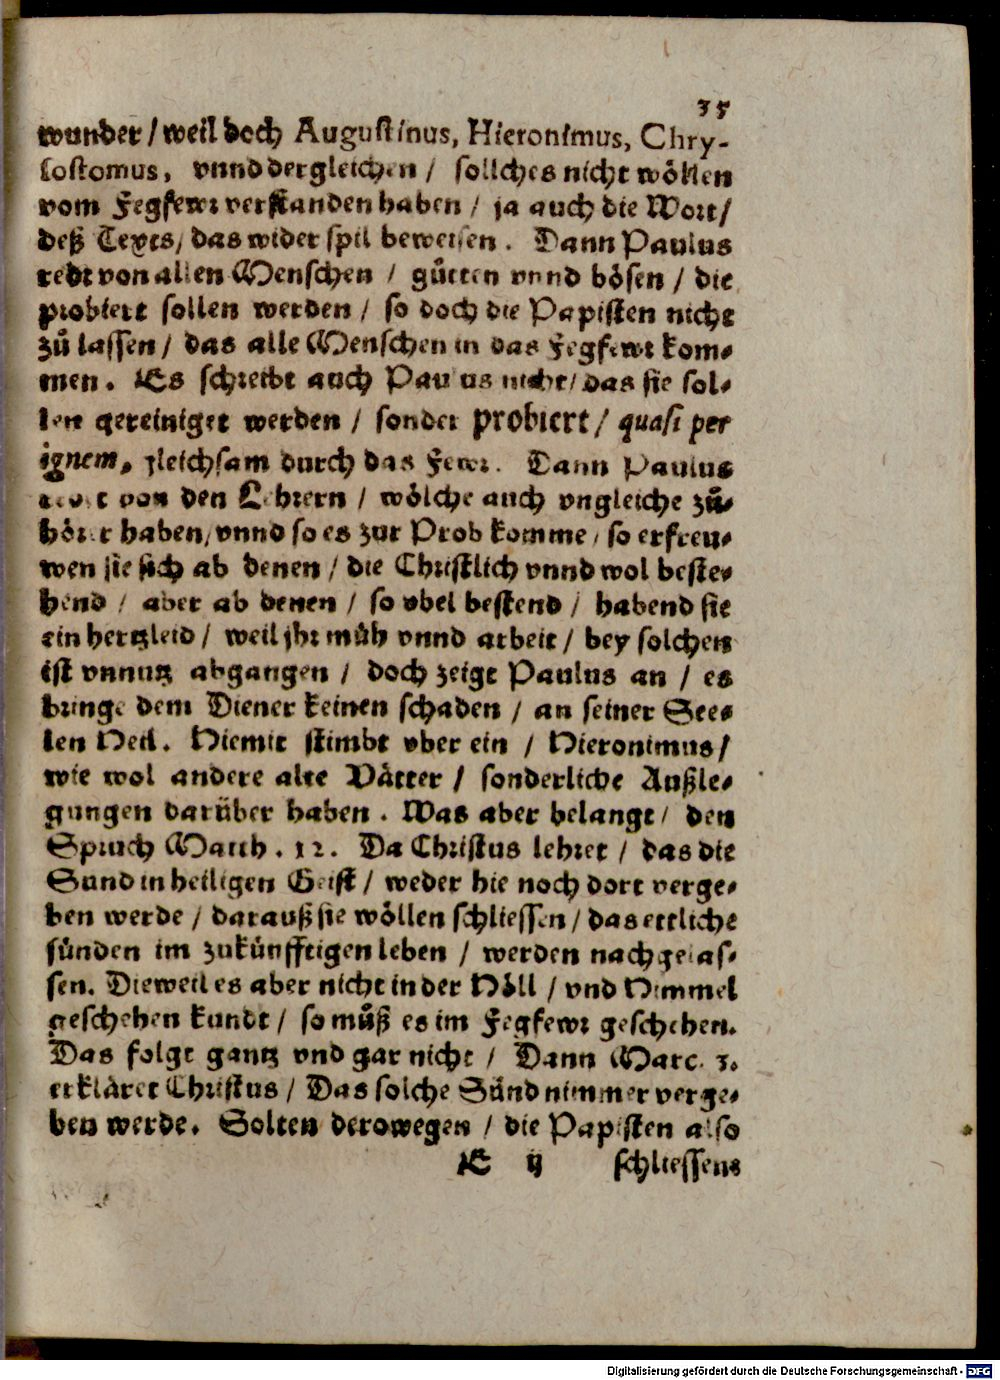 35
wunder / weil doch Augustinus, Hieronimus, Chry-
sostomus, vnnd dergleichen / sollches nicht wöllen
vom Fegfewr verstanden haben / ja auch die Wort /
deß Texts / das wider spil beweisen. Dann Paulus
redt von allen Menschen / gůtten vnnd bösen / die
probiert sollen werden / so doch die Papisten nicht
zů lassen / das alle Menschen in das Fegfewr kom-
men. Es schreibt auch Paulus nicht / das sie sol-
len gereiniget werden / sonder probiert / quasi per
ignem, gleichsam durch das Fewr. Dann Paulus
redet von den Lehrern / wölche auch vngleiche zů-
hörer haben, vnnd so es zur Prob komme, so erfreu-
wen sie sich ab denen / die Christlich vnnd wol beste-
hend / aber ab denen / so vbel bestend / habend sie
ein hertzleid / weil jhr müh vnnd arbeit / bey solchen
ist vnnutz abgangen / doch zeigt Paulus an / es
bringe dem Diener keinen schaden / an seiner See-
len Heil. Hiemit stimbt vber ein / Hieronimus /
wie wol andere alte Vätter / sonderliche Außle-
gungen darüber haben. Was aber belangt / den
Spruch Matth. 12. Da Christus lehret / das die
Sünd in heiligen Geist / weder hie noch dort verge-
ben werde / darauß sie wöllen schliessen / das ettliche
sünden im zukünfftigen leben / werden nachgelas-
sen. Dieweil es aber nicht in der Höll / vnd Himmel
geschehen kundt / so můß es im Fegfewr geschehen.
Das folgt gantz vnd gar nicht / Dann Marc. 3.
erkläret Christus / Das solche Sünd nimmer verge-
ben werde. Solten derowegen / die Papisten also
E ij schliessens
Digitalisierung gefördert durch die Deutsche Forschungsgemeinschaft - DFG